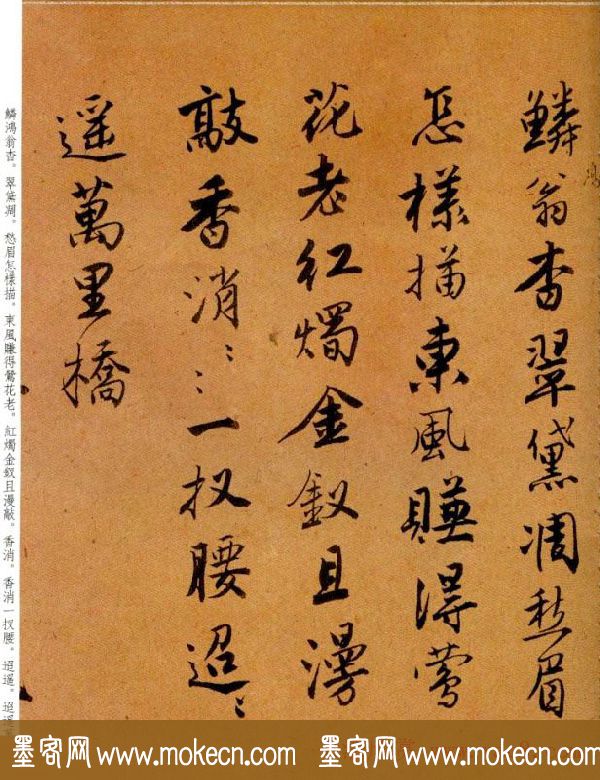 鱗翁杳翠黛凋愁眉
鴻
怎樣描東風賺得鶯
花老紅燭金釵且漫
敲香消〻〻一扠腰迢〻
遥萬里橋
鱗鴻翁杳。翠黛凋。愁眉怎樣描。東風賺得鶯花老。紅燭金釵且漫敲。香消。香消一扠腰。迢遥。迢遥
墨客网 www.mokecn.com 墨客网 www.mokecn.com